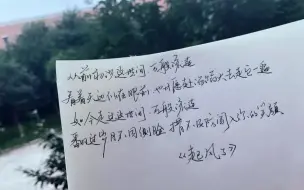 从前初识这世间 万般流连
看着天边似在眼前 也甘愿赴汤蹈火去走它一遍
如今走过这世间 万般流连
翻过岁月不同侧脸 措不及防闯入你的笑颜
《起风了》